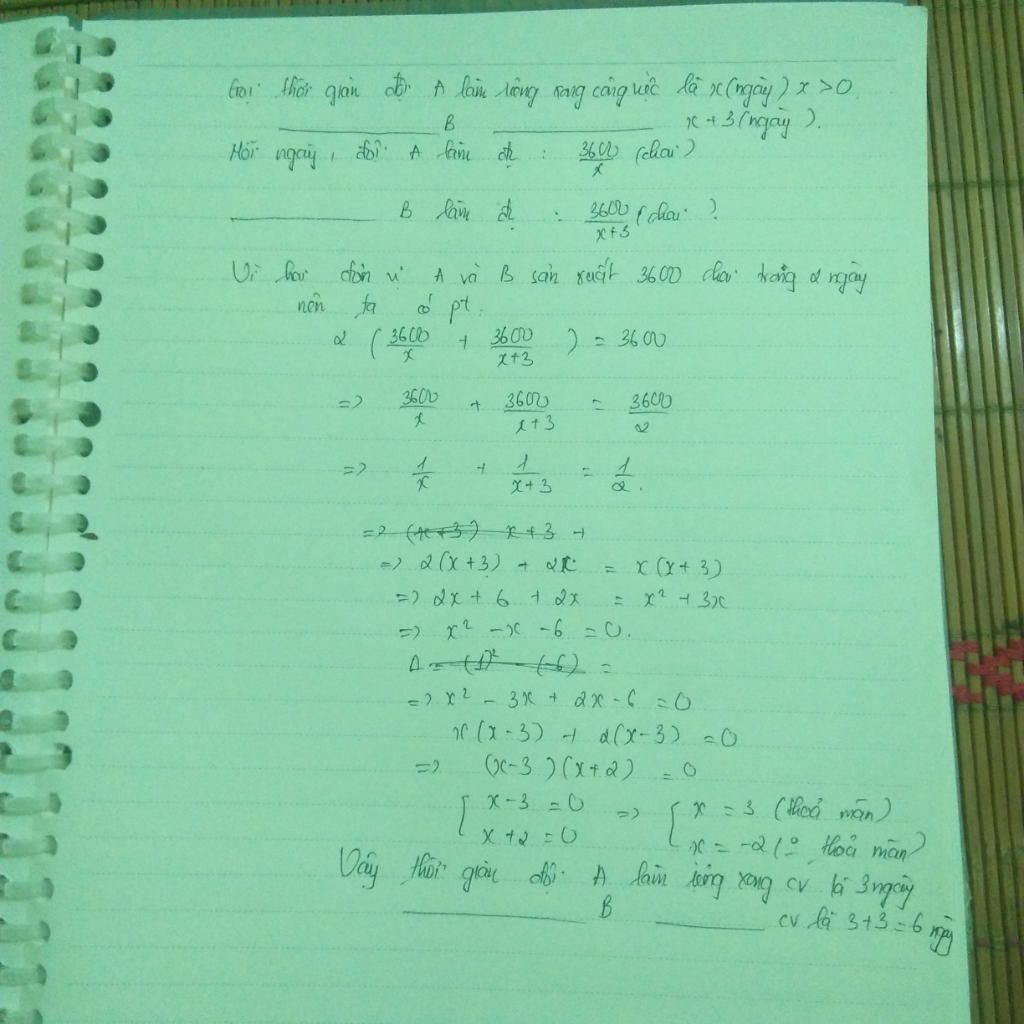 Gọi thời gian đội A làm riêng xong công việc là x (ngày) x > 0
______ B ______ x + 3 (ngày).
Mỗi ngày, đội A làm đc : 3600/x (chai)
______ B làm đc : 3600/(x+3) (chai).
Vì hai đơn vị A và B sản xuất 3600 chai trong 2 ngày
nên ta có pt:
2 (3600/x + 3600/(x+3)) = 3600
=> 3600/x + 3600/(x+3) = 3600/2
=> 1/x + 1/(x+3) = 1/2.
=> (x+3) x+3 +
=> 2(x+3) + 2x = x(x+3)
=> 2x + 6 + 2x = x² + 3x
=> x² - x - 6 = 0.
Δ = (1)² - (-6) =
=> x² - 3x + 2x - 6 = 0
x(x-3) + 2(x-3) = 0
=> (x-3)(x+2) = 0
[ x-3 = 0 => [ x = 3 (thoả mãn)
x+2 = 0 x = -2 (0 thoả mãn)
Vậy thời gian đội A làm riêng xong cv là 3 ngày
______ B ______ cv là 3+3 = 6 ngày